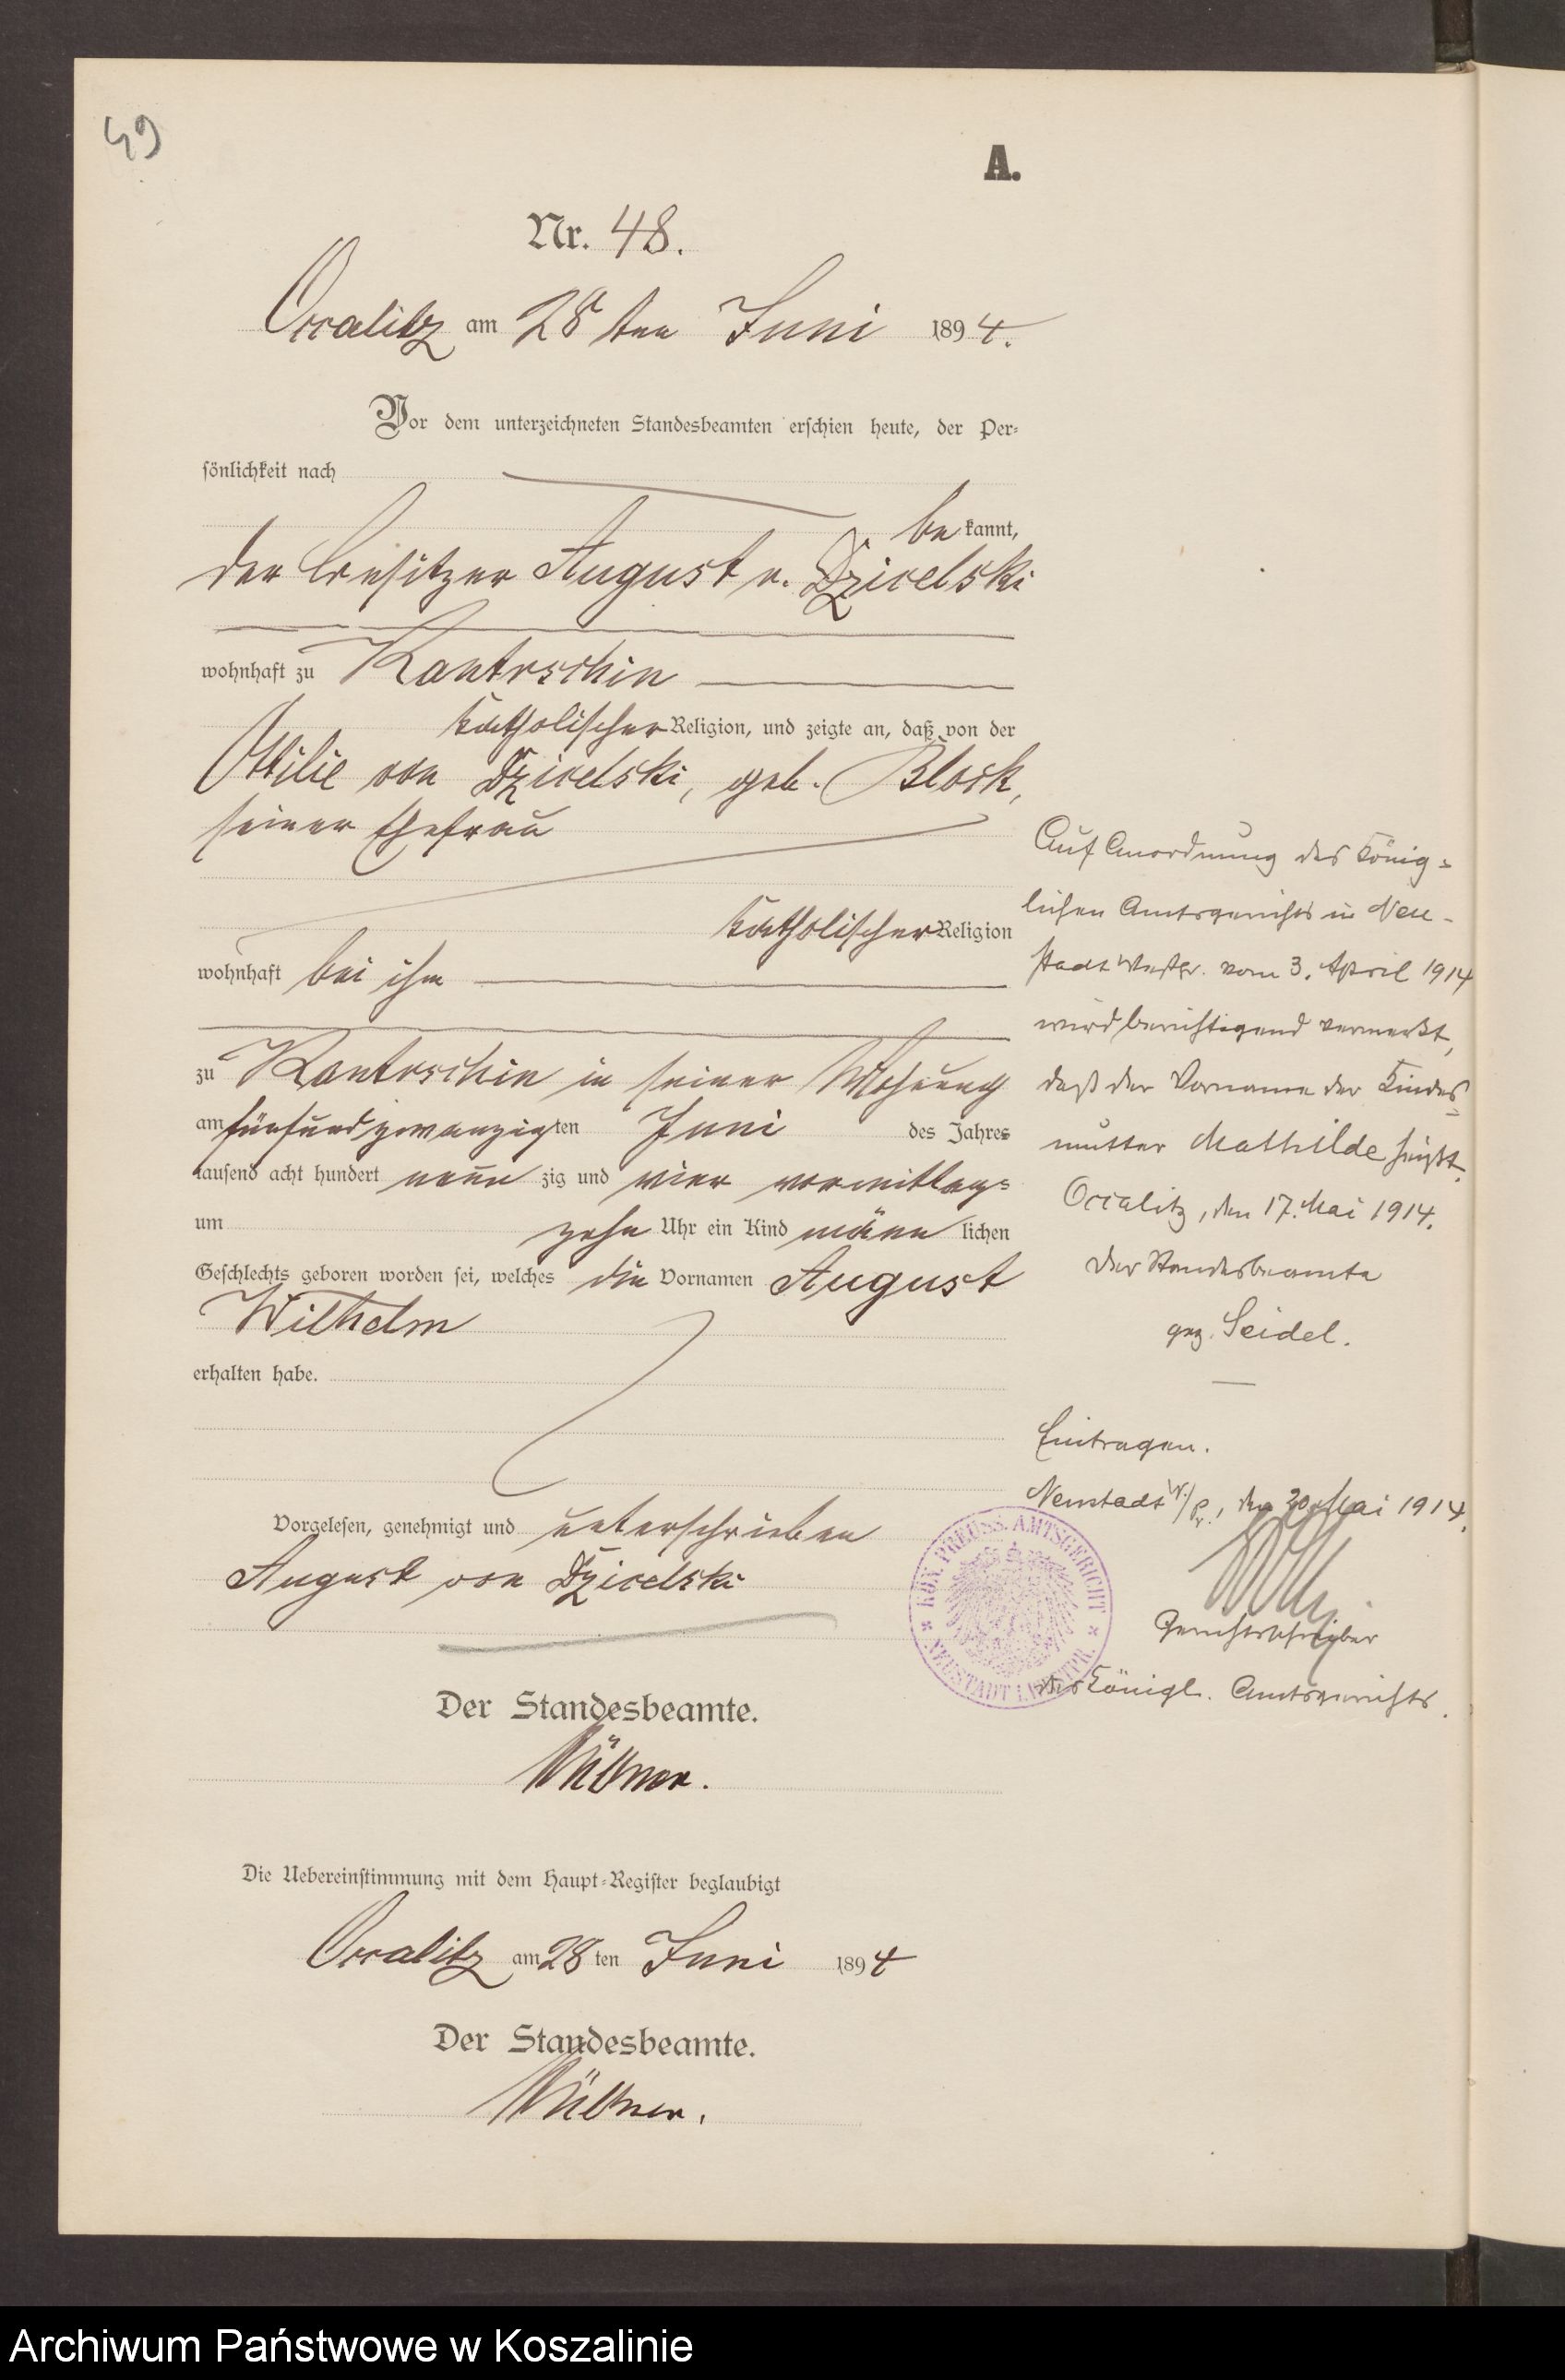 49
A.
Nr. 48.
Occalitz am 28 ten Juni 1894.
Vor dem unterzeichneten Standesbeamten erschien heute, der Per-
sönlichkeit nach
be kannt,
der Besitzer August v. Dzicelski
wohnhaft zu Kantrschin
katholischer Religion, und zeigte an, daß von der
Ottilie von Dzicelski, geb. Block,
seiner Ehefrau
katholischer Religion
wohnhaft bei ihm
zu Kantrschin in seiner Wohnung
am fünfundzwanzigten Juni des Jahres
tausend acht hundert neun zig und vier vormittags
um zehn Uhr ein Kind männ lichen
Geschlechts geboren worden sei, welches die Vornamen August
Wilhelm
erhalten habe.
Vorgelesen, genehmigt und unterschrieben
August von Dzicelski
Der Standesbeamte.
Die Uebereinstimmung mit dem Haupt-Register beglaubigt
Occalitz am 28 ten Juni 1894
Der Standesbeamte.
Auf Anordnung des König-
lichen Amtsgerichts in Neu-
stadt Westpr. vom 3. April 1914
wird berichtigend vermerkt,
daß der Vorname der Kindes-
mutter Mathilde heißt.
Occalitz, den 17. Mai 1914.
Der Standesbeamte
gez. Seidel.
Eintragen.
Neustadt W./Pr., den 20. Mai 1914.
Gerichtsschreiber
des Königl. Amtsgerichts.
KÖN. PREUSS. AMTSGERICHT
* NEUSTADT i. WESTPR. *
Archiwum Państwowe w Koszalinie